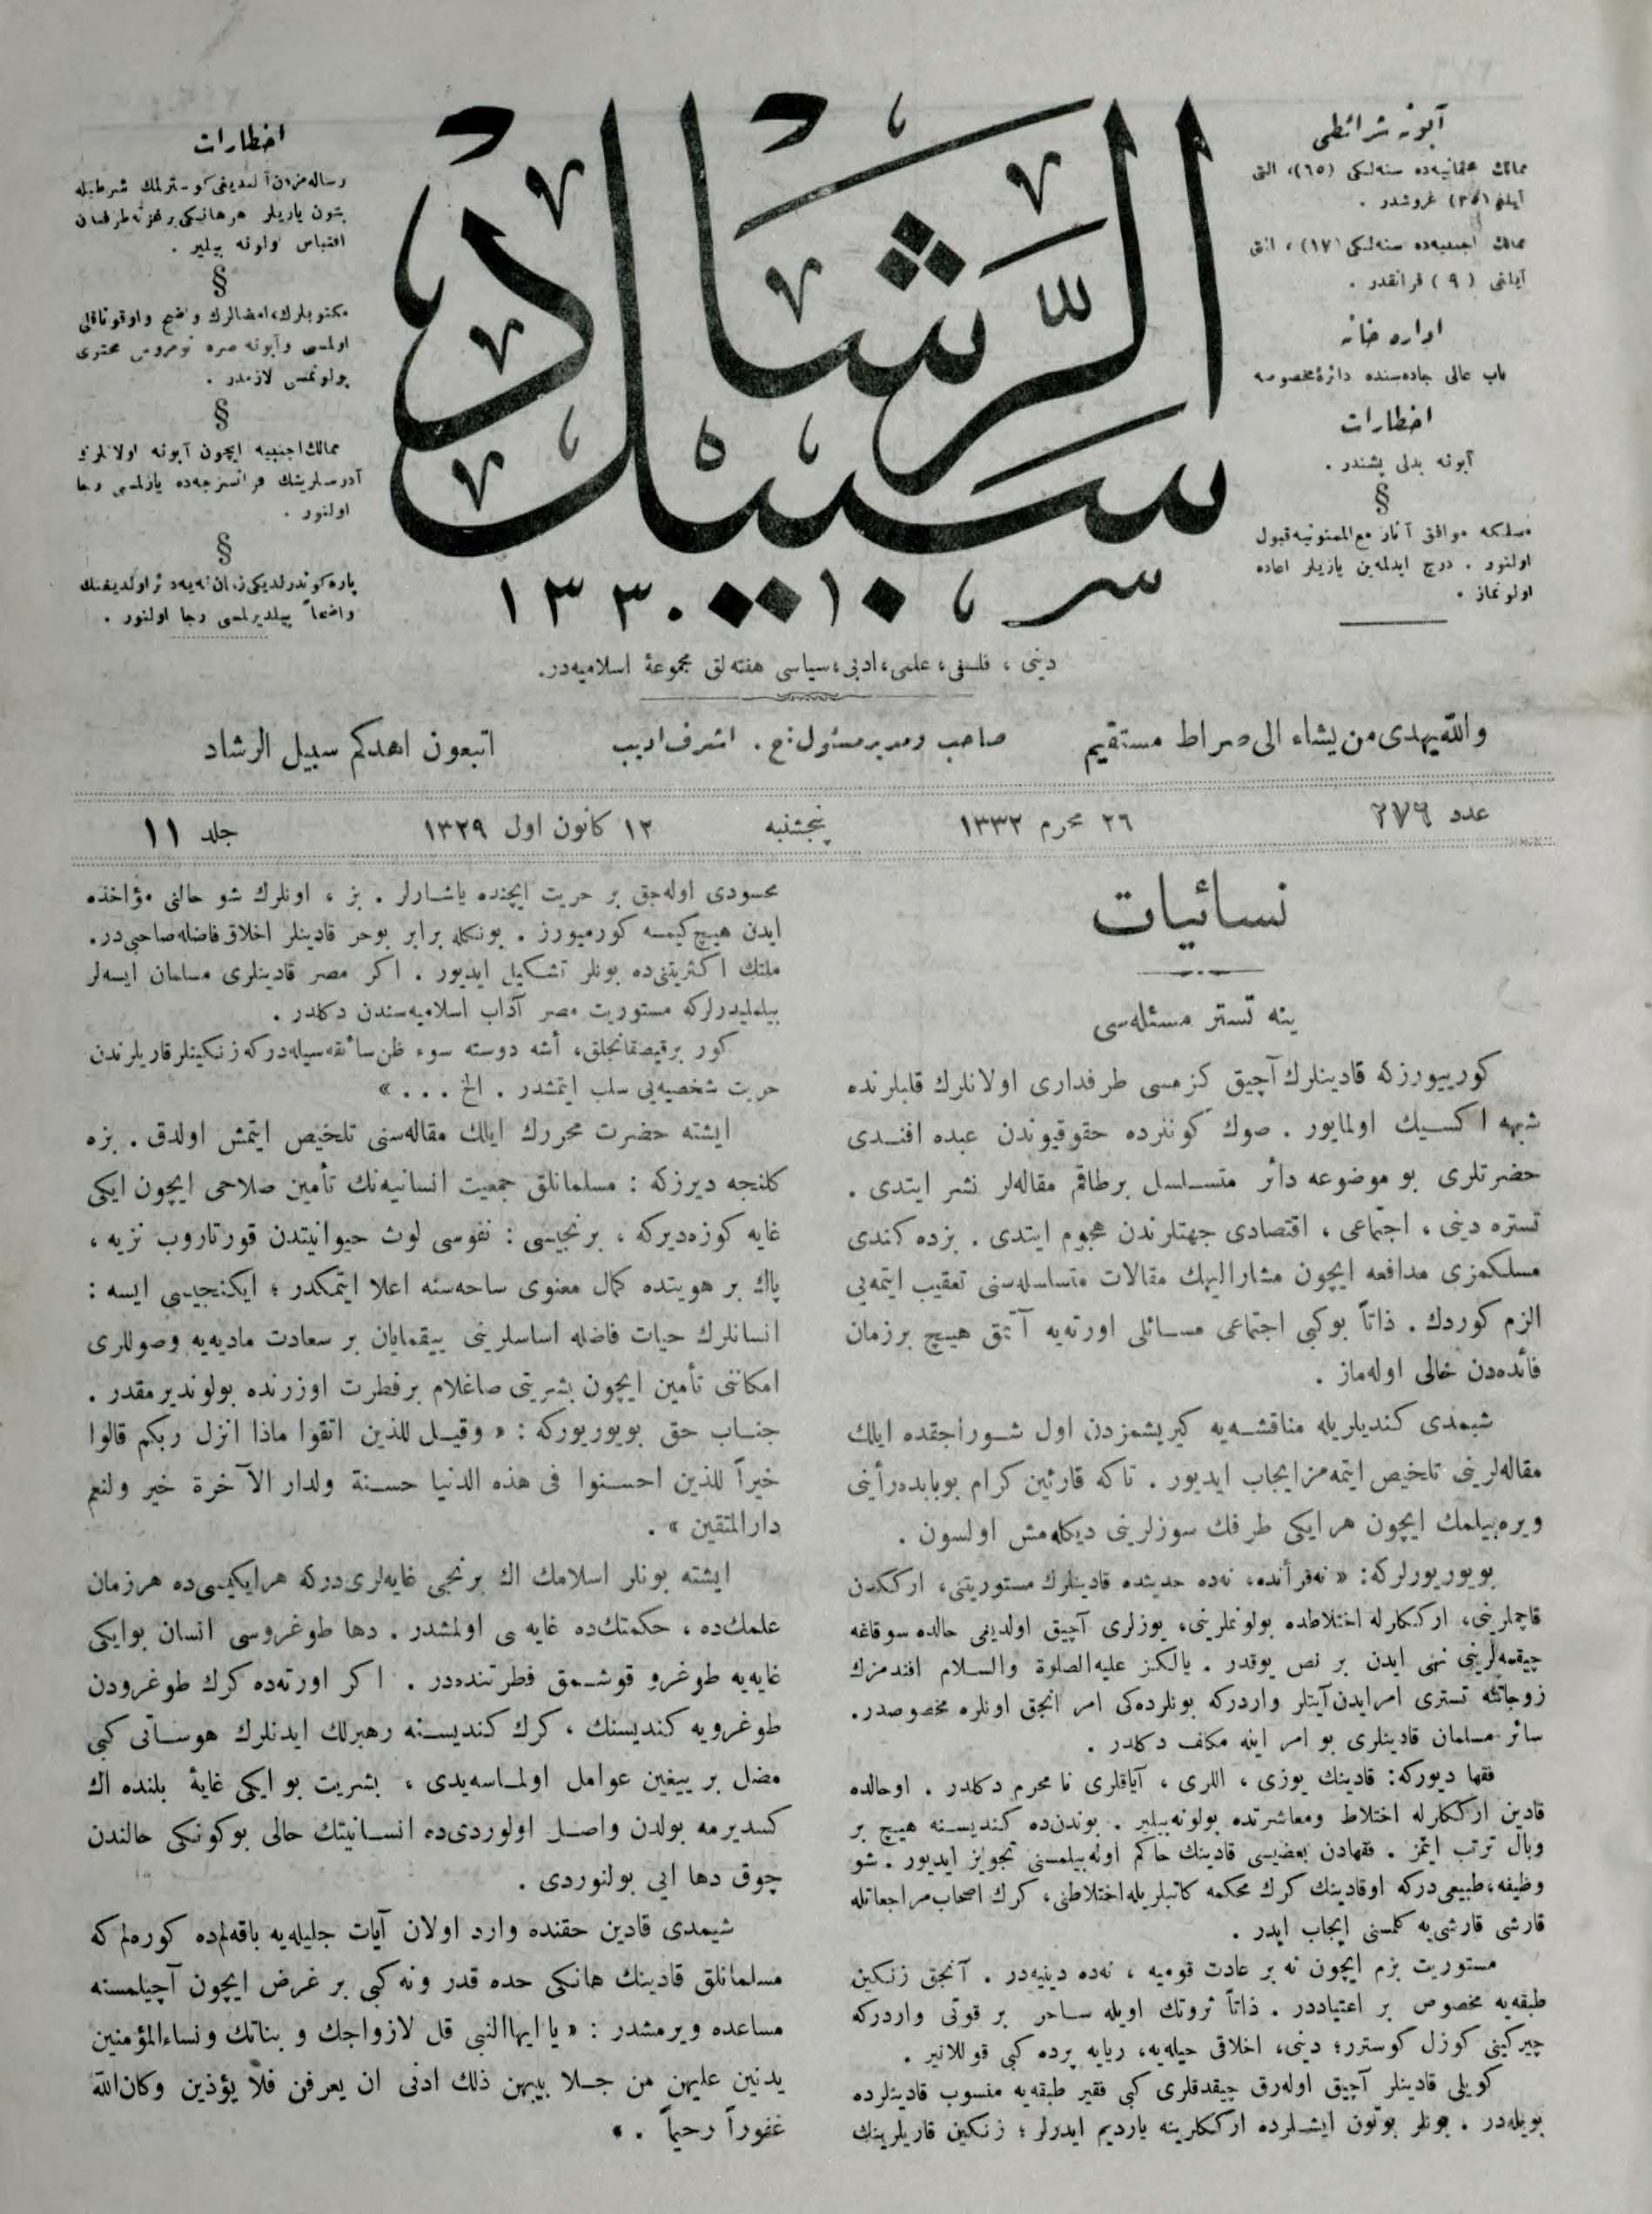 آبونه شرائطی
ممالك عثمانیه‌ده سنه‌لكی (٦٥)، التی
آیلغی (٣٥) غروشدر .
ممالك اجنبیه‌ده سنه‌لكی (١٧) ، التی
آیلغی (٩) فرانقدر .
اداره خانه
باب عالی جاده‌سنده دائرۀ مخصوصه
اخطارات
آبونه بدلی پشندر .
§
مسلكه موافق آثار مع الممنونیه قبول
اولنور . درج ایدلمه‌ین یازیلر اعاده
اولونماز .
سبیل الرشاد
سر ١٠ ١٣٣٠
اخطارات
رساله‌مزدن آلندیغی كوسترلمك شرطیله
بتون یازیلر هر هانكی بر غزته طرفندن
اقتباس اولونه بیلیر .
§
مكتوبلرك، امضالرك واضح و اوقوناقلی
اولمسی و آبونه صره نومروسی محتوی
بولونمسی لازمدر .
§
ممالك اجنبیه ایچون آبونه اولانلرك
آدرسلرینك فرانسزجه‌ده یازلمسی رجا
اولنور .
§
پاره كوندرلدیكی زمان نه‌یه دائر اولدیغنك
واضحاً بیلدیرلمسی رجا اولنور .
دینی ، فلسفی ، علمی ، ادبی ، سیاسی هفته‌لق مجموعۀ اسلامیه‌در.
والله یهدی من یشاء الی صراط مستقیم
صاحب و مدیر مسئول : ح . اشرف ادیب
اتبعون اهدكم سبیل الرشاد
عدد ٢٧٦
٢٦ محرم ١٣٣٢
پنجشنبه
١٢ كانون اول ١٣٢٩
جلد ١١
نسائیات
ینه تستر مسئله‌سی
كورییورزكه قادینلرك آچیق كزمسی طرفداری اولانلرك قلبلرنده
شبهه اكسیك اولمایور . صوك كونلرده حقوقیوندن عبده افندی
حضرتلری بو موضوعه دائر متسلسل برطاقم مقاله‌لر نشر ایتدی .
تستره دینی ، اجتماعی ، اقتصادی جهتلرندن هجوم ایتدی . بزده كندی
مسلكمزی مدافعه ایچون مشارالیهك مقالات متسلسله‌سنی تعقیب ایتمه‌یی
الزم كوردك . ذاتاً بوكبی اجتماعی مسائلی اورته‌یه آتمق هیچ برزمان
فائده‌دن خالی اوله‌ماز .
شیمدی كندیلریله مناقشه‌یه كیریشمزدن اول شوراجقده ایلك
مقاله‌لرینی تلخیص ایتمه‌مز ایجاب ایدیور . تاكه قارئین كرام بوبابده رأینی
ویره‌بیلمك ایچون هر ایكی طرفك سوزلرینی دیكله‌مش اولسون .
بویوریورلركه: « نه قرآنده، نه‌ده حدیثده قادینلرك مستوریتنی، ارككدن
قاچملرینی، ارككلرله اختلاطده بولونملرینی، یوزلری آچیق اولدیغی حالده سوقاغه
چیقمه‌لرینی نهی ایدن بر نص یوقدر . یالكز علیه الصلوة والسلام افندمزك
زوجاتنه تستری امر ایدن آیتلر واردركه بونلرده‌كی امر انجق اونلره مخصوصدر.
سائر مسلمان قادینلری بو امر ایله مكلف دكلدر .
فقها دیوركه: قادینك یوزی ، اللری ، آیاقلری نا محرم دكلدر . اوحالده
قادین ارككلرله اختلاط ومعاشرتده بولونه‌بیلیر . بوندن‌ده كندیسنه هیچ بر
وبال ترتب ایتمز . فقهادن بعضیسی قادینك حاكم اوله‌بیلمسنی تجویز ایدیور . شو
وظیفه، طبیعی‌دركه اوقادینك كرك محكمه كاتبلریله اختلاطنی، كرك اصحاب مراجعاتله
قارشی قارشی‌یه كلمسنی ایجاب ایدر .
مستوریت بزم ایچون نه بر عادت قومیه ، نه‌ده دینیه‌در . آنجق زنكین
طبقه‌یه مخصوص بر اعتیاددر . ذاتاً ثروتك اویله ساحر بر قوتی واردركه
چیركینی كوزل كوسترر؛ دینی، اخلاقی حیله‌یه، ریایه پرده كبی قوللانیر .
كویلی قادینلر آچیق اوله‌رق چیقدقلری كبی فقیر طبقه‌یه منسوب قادینلرده
بویله‌در . بونلر بوتون ایشلرده ارككلرینه یاردیم ایدرلر ؛ زنكین قاریلرینك
محسودی اوله‌جق بر حریت ایچنده یاشارلر . بز ، اونلرك شو حالنی مؤاخذه
ایدن هیچ كیمسه كورمیورز . بونكله برابر بوحر قادینلر اخلاق فاضله صاحبی‌در.
ملتك اكثریتنی‌ده بونلر تشكیل ایدیور . اكر مصر قادینلری مسلمان ایسه‌لر
بیلملیدرلركه مستوریت مصر آداب اسلامیه‌سندن دكلدر .
كور برقیصقانجلق، أشه دوسته سوء ظن سائقه‌سیله‌دركه زنكینلر قاریلرندن
حریت شخصیه‌یی سلب ایتمشدر . الخ . . . »
ایشته حضرت محررك ایلك مقاله‌سنی تلخیص ایتمش اولدق . بزه
كلنجه دیرزكه : مسلمانلق جمعیت انسانیه‌نك تأمین صلاحی ایچون ایكی
غایه كوزه‌دیركه ، برنجیسی : نفوسی لوث حیوانیتدن قورتاروب نزیه ،
پاك بر هویتده كمال معنوی ساحه‌سنه اعلا ایتمكدر ؛ ایكنجیسی ایسه :
انسانلرك حیات فاضله اساسلرینی ییقمایان بر سعادت مادیه‌یه وصوللری
امكاننی تأمین ایچون بشریتی صاغلام برفطرت اوزرنده بولوندیرمقدر .
جناب حق بویوریوركه : « وقیل للذین اتقوا ماذا انزل ربكم قالوا
خیراً للذین احسنوا فی هذه الدنیا حسنة ولدار الآخرة خیر ولنعم
دارالمتقین » .
ایشته بونلر اسلامك اك برنجی غایه‌لری‌دركه هرایكیسی‌ده هرزمان
علمك‌ده ، حكمتك‌ده غایه‌سی اولمشدر . دها طوغروسی انسان بوایكی
غایه‌یه طوغرو قوشمق فطرتنده‌در . اكر اورته‌ده كرك طوغرودن
طوغرویه كندیسنك ، كرك كندیسنه رهبرلك ایدنلرك هوساتی كبی
مضل بر ییغین عوامل اولماسه‌یدی ، بشریت بو ایكی غایۀ بلنده اك
كسدیرمه یولدن واصل اولوردی‌ده انسانیتك حالی بوكونكی حالندن
چوق دها ایی بولنوردی .
شیمدی قادین حقنده وارد اولان آیات جلیله‌یه باقه‌لم‌ده كوره‌لم كه
مسلمانلق قادینك هانكی حده قدر ونه كبی بر غرض ایچون آچیلمسنه
مساعده ویرمشدر : « یا ایها النبی قل لازواجك و بناتك ونساء المؤمنین
یدنین علیهن من جلا بیبهن ذلك ادنی ان یعرفن فلا یؤذین وكان الله
غفوراً رحیماً . »